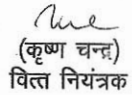 (कृष्ण चन्द्र)
वित्त नियंत्रक